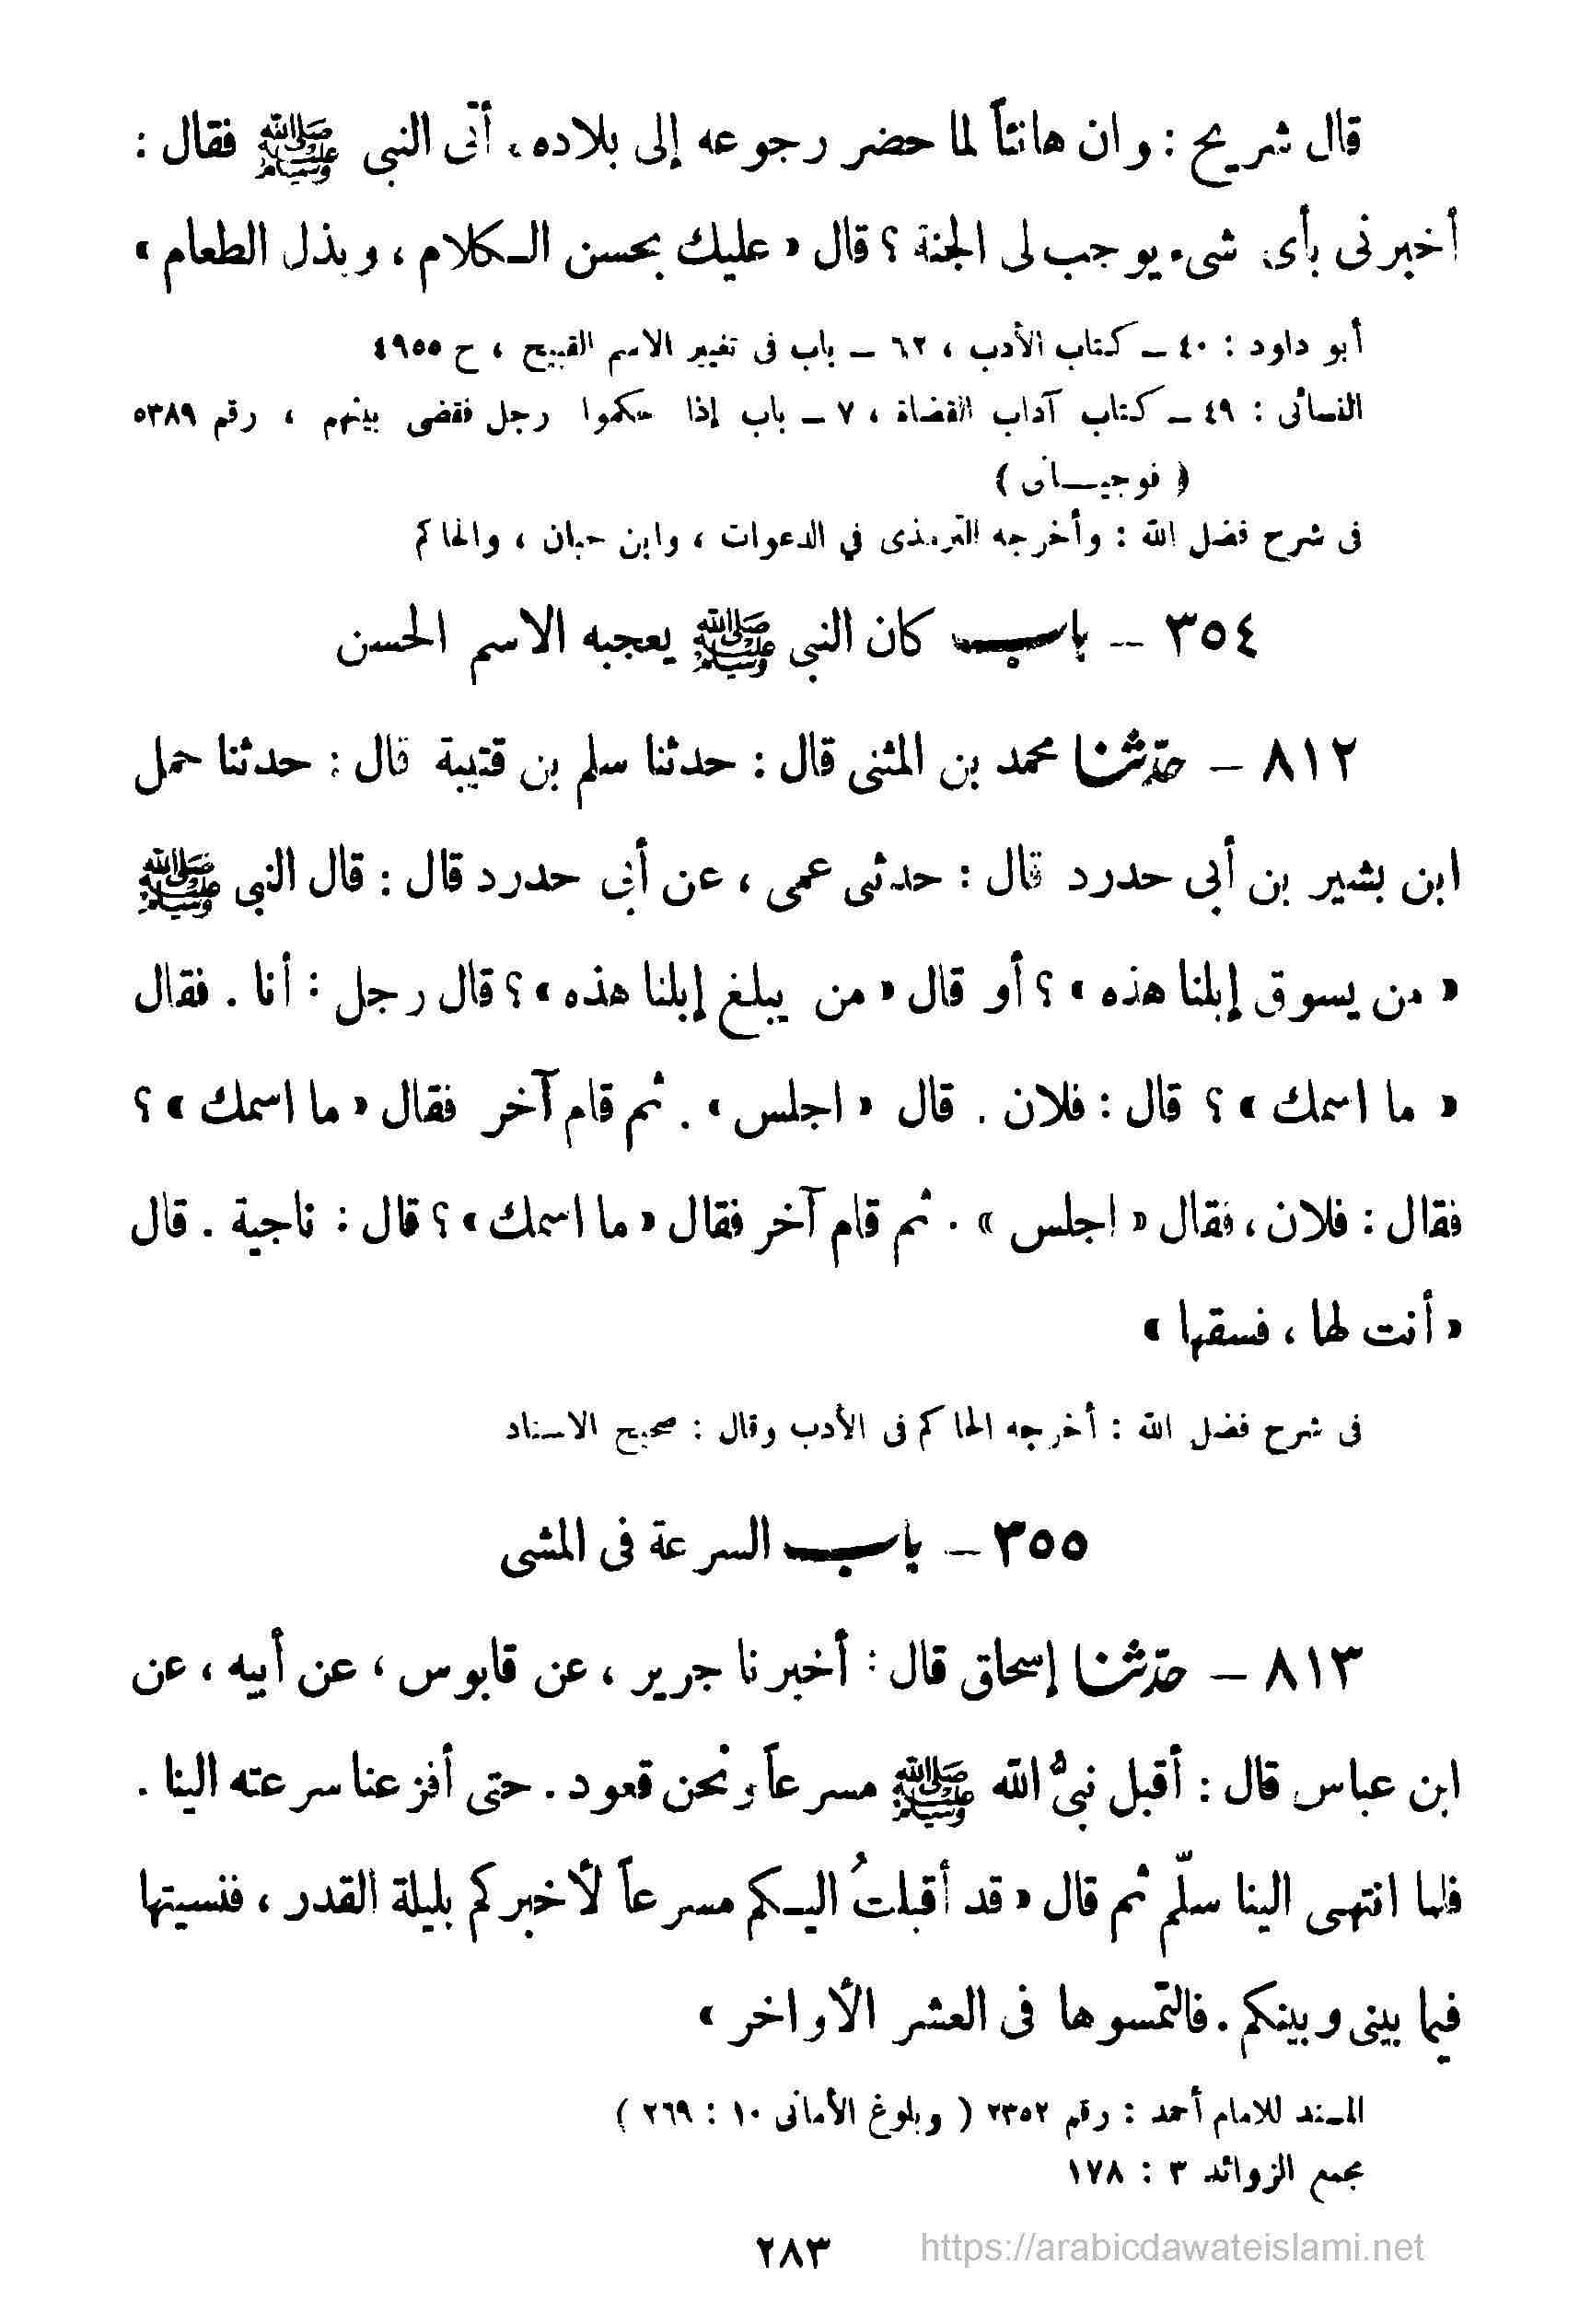 قال شريح : وان هانئاً لما حضر رجوعه إلى بلاده ، أتى النبى ﷺ فقال :
أخبرنى بأى شىء يوجب لى الجنة ؟ قال « عليك بحسن الـكلام ، وبذل الطعام »
أبو داود : ٤٠ ــ كتاب الأدب ، ٦٢ ــ باب فى تغيير الاسم القبيح ، ح ٤٩٥٥
النسائى : ٤٩ ــ كتاب آداب القضاة ، ٧ ــ باب إذا حكموا رجل فقضى بينهم ، رقم ٥٣٨٩
( فوجيـــانى )
فى شرح فضل الله : وأخرجه الترمذى في الدعوات ، وابن حبان ، والحاكم
٣٥٤ -- باب كان النبى ﷺ يعجبه الاسم الحسن
٨١٢ ــ حدّثنا محمد بن المثنى قال : حدثنا سلم بن قتيبة قال : حدثنا حمل
ابن بشير بن أبى حدرد قال : حدثنى عمى ، عن أبي حدرد قال : قال النبى ﷺ
« من يسوق إبلنا هذه » ؟ أو قال « من يبلغ إبلنا هذه » ؟ قال رجل : أنا . فقال
« ما اسمك » ؟ قال : فلان . قال « اجلس » . ثم قام آخر فقال « ما اسمك » ؟
فقال : فلان ، فقال « اجلس » . ثم قام آخر فقال « ما اسمك » ؟ قال : ناجية . قال
« أنت لها ، فسقها »
فى شرح فضل الله : أخرجه الحاكم فى الأدب وقال : صحيح الاسناد
٣٥٥ ــ باب السرعة فى المشى
٨١٣ ــ حدّثنا إسحاق قال : أخبرنا جرير ، عن قابوس ، عن أبيه ، عن
ابن عباس قال : أقبل نبىُّ الله ﷺ مسرعاً ونحن قعود . حتى أفزعنا سرعته الينا .
فلما انتهى الينا سلّم ثم قال « قد أقبلتُ اليـكم مسرعاً لأخبركم بليلة القدر ، فنسيتها
فيما بينى وبينكم . فالتمسوها فى العشر الأواخر »
المسند للامام أحمد : رقم ٢٣٥٢ ( وبلوغ الأمانى ١٠ : ٢٦٩ )
مجمع الزوائد ٣ : ١٧٨
٢٨٣
https://arabicdawateislami.net